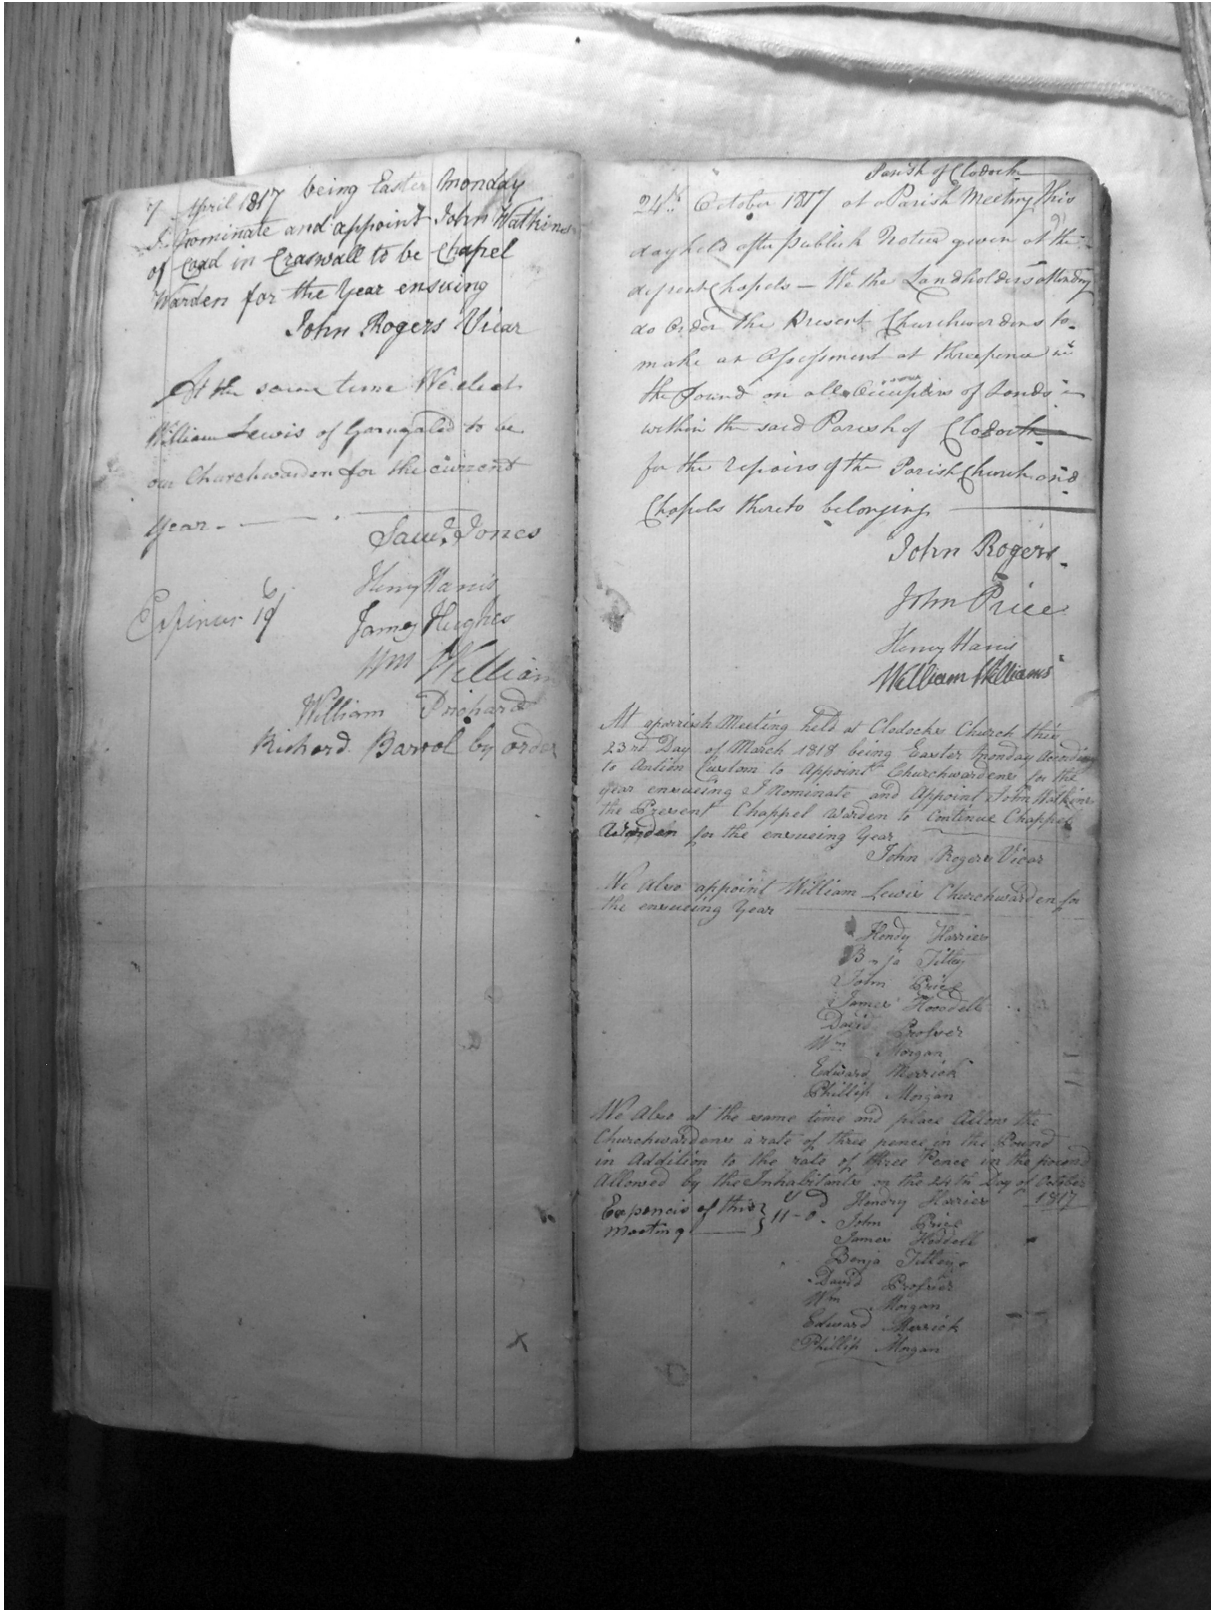 7 April 1817 being Easter Monday
I nominate and appoint John Watkins
of Coad in Craswall to be Chapel
Warden for the Year ensuing
John Rogers Vicar
At the same time We elect
William Lewis of to be
our Churchwarden for the current
Year
Saml Jones
Henry Harris
James Hughes
Wm William
William Prichard
Richard Barrol by order
Parish of Clodock
24th October 1817 at a Parish Meeting this
day held after publick Notice given at the
different Chapels — We the Landholders Attending
do Order the Present Churchwardens to
make an Assessment at threepence in
the Pound on all Occupiers of Lands
within the said Parish of Clodock
for the repairs of the Parish Church and
Chapels thereto belonging
John Rogers
John Price
Henry Harris
William Williams
At a parrish Meeting held at Clodocks Church this
23rd Day of March 1818 being Easter Monday Acording
to Antion Custom to Appoint Churchwardens for the
year ensueing I Nominate and Appoint John Watkins
the Present Chappel warden to Continue Chappel
Warden for the ensueing Year
John Rogers Vicar
We Also appoint William Lewis Churchwarden for
the ensueing Year
Hendry Harries
John Price
James
David Prosser
Wm Morgan
Edward Merrick
Phillip Morgan
We Also at the same time and place Allow the
Churchwardens a rate of three pence in the Pound
in Addition to the rate of three Pence in the pound
Allowed by the Inhabitants on the 24th Day of October
1817
Expencis of this
meeting 11-0
Hendry Harries
John Price
James Hoddell
Benja
David Prosser
Wm Morgan
Edward Merrick
Phillip Morgan